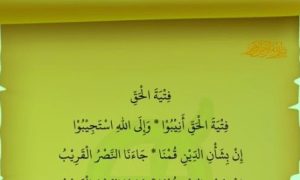 فِتْيَةَ الْحَقِّ
فِتْيَةَ الْحَقِّ أَنِيْبُوْا * وَإِلَى اللهِ اسْتَجِيْبُوْا
إِنْ بِشَأْنِ الدِّيْنِ قُمْنَا * جَاءَنَا النَّصْرُ الْقَرِيْبُ